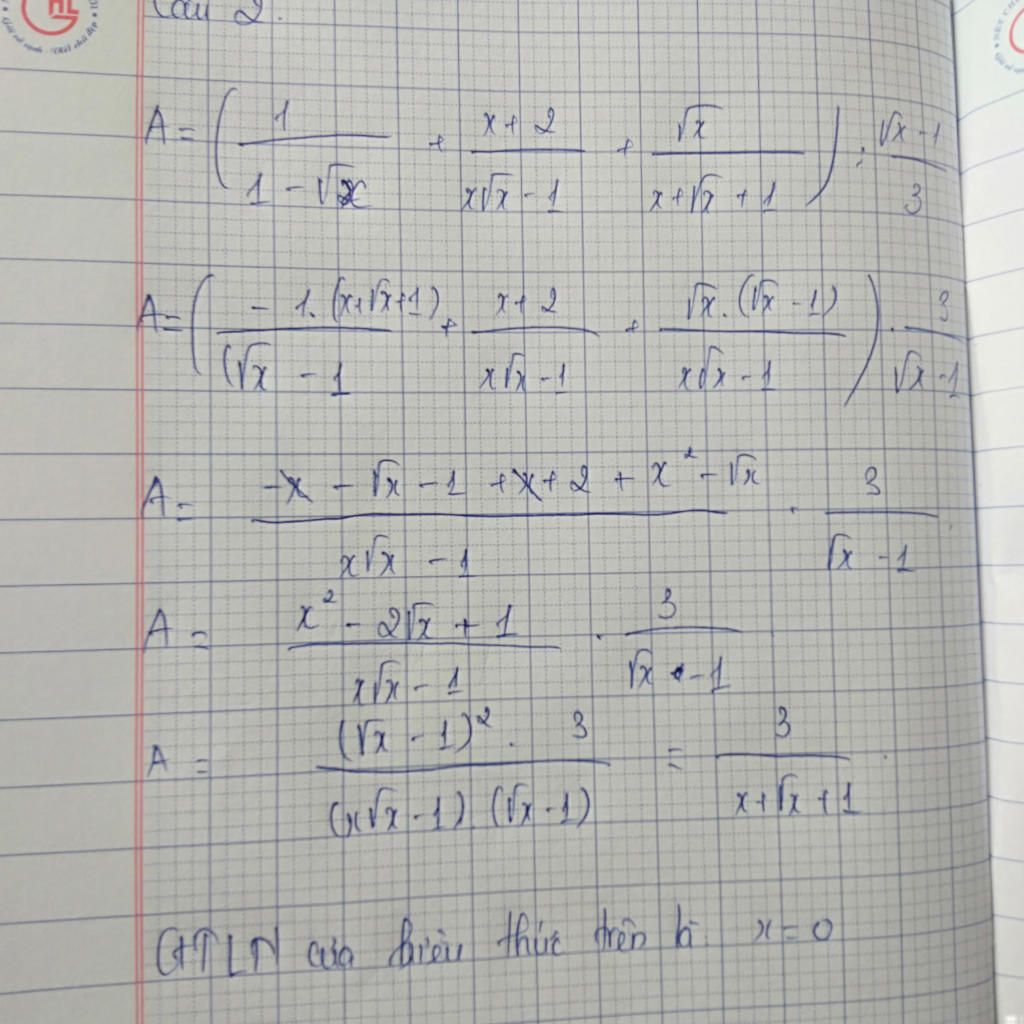 Câu 2.
A = ( 1/(1 - √x) + (x + 2)/(x√x - 1) + √x/(x + √x + 1) ) : (√x - 1)/3
A = ( - 1.(x+√x+1)/(√x - 1 + (x + 2)/(x√x - 1) + √x.(√x - 1)/(x√x - 1) ) . 3/(√x - 1)
A = (-x - √x - 1 + x + 2 + x² - √x)/(x√x - 1) . 3/(√x - 1)
A = (x² - 2√x + 1)/(x√x - 1) . 3/(√x - 1)
A = (√x - 1)² . 3/(x√x - 1) (√x - 1) = 3/(x + √x + 1) .
GTLN của biểu thức trên là x = 0